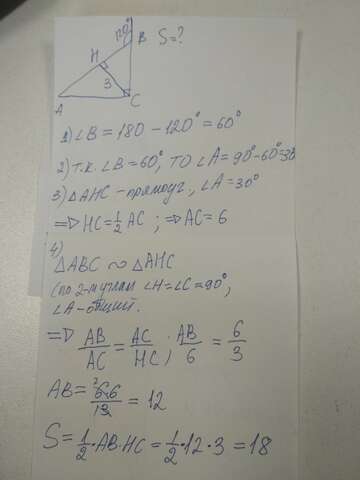 120°
H
B
S=?
3
A
C
1) ∠B = 180 - 120° = 60°
2) т.к. ∠B = 60°, то ∠A = 90° - 60° = 30
3) △AHC - прямоуг., ∠A = 30°
=> HC = 1/2 AC ; => AC = 6
4)
△ABC ∾ △AHC
(по 2-м углам ∠H = ∠C = 90°,
∠A - общий.
=> AB/AC = AC/HC ) AB/6 = 6/3
= 12
S = 1/2 · AB · HC = 1/2 · 12 · 3 = 18